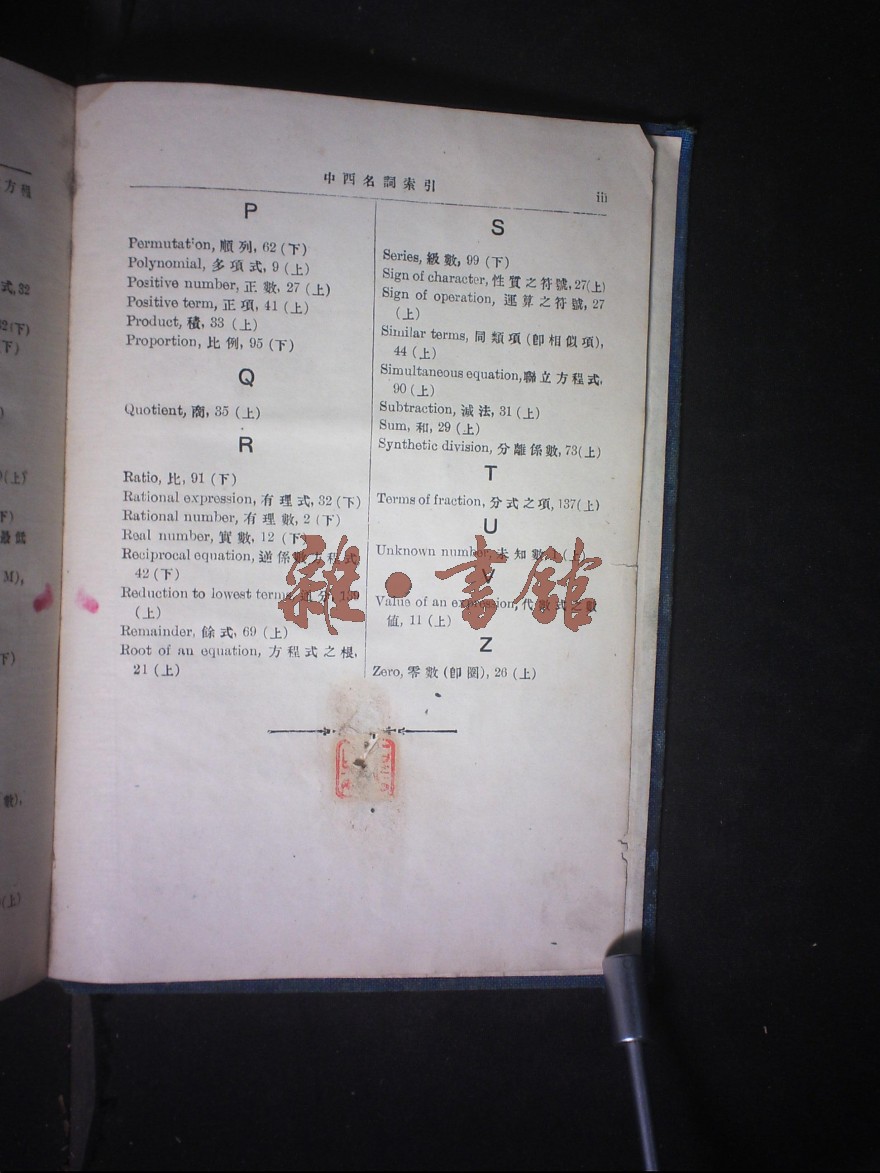 中西名詞索引
iii
P
Permutation, 順列, 62 (下)
Polynomial, 多項式, 9 (上)
Positive number, 正數, 27 (上)
Positive term, 正項, 41 (上)
Product, 積, 33 (上)
Proportion, 比例, 95 (下)
Q
Quotient, 商, 35 (上)
R
Ratio, 比, 91 (下)
Rational expression, 有理式, 32 (下)
Rational number, 有理數, 2 (下)
Real number, 實數, 12 (下)
Reciprocal equation, 逆係數方程式,
42 (下)
Reduction to lowest terms, 約分, 139
(上)
Remainder, 餘式, 69 (上)
Root of an equation, 方程式之根,
21 (上)
S
Series, 級數, 99 (下)
Sign of character, 性質之符號, 27(上)
Sign of operation, 運算之符號, 27
(上)
Similar terms, 同類項(卽相似項),
44 (上)
Simultaneous equation, 聯立方程式,
90 (上)
Subtraction, 減法, 31 (上)
Sum, 和, 29 (上)
Synthetic division, 分離係數, 73(上)
T
Terms of fraction, 分式之項, 137(上)
U
Unknown number, 未知數, 1 (上)
V
Value of an expression, 代數式之數
值, 11 (上)
Z
Zero, 零數(卽圈), 26 (上)
雜·書館
方程
式, 32
32(下)
(下)
(上)
下)
最低
M),
下)
數),
(上)